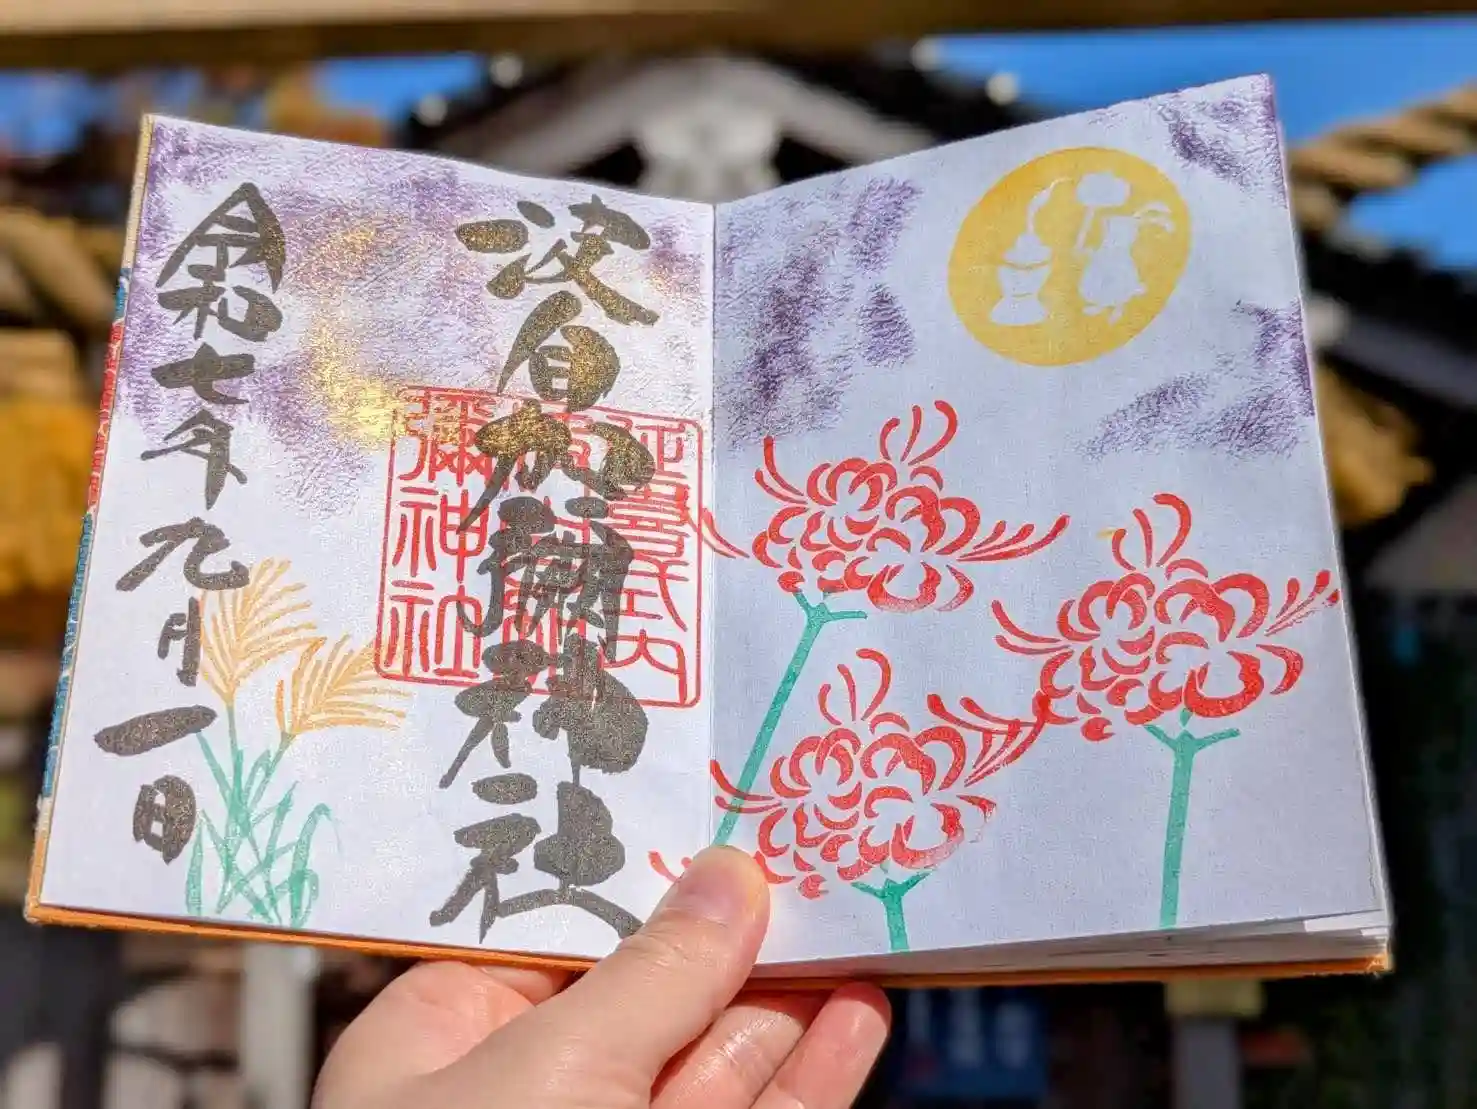 波自加彌神社
延喜式内
彌神社
令和七年九月一日